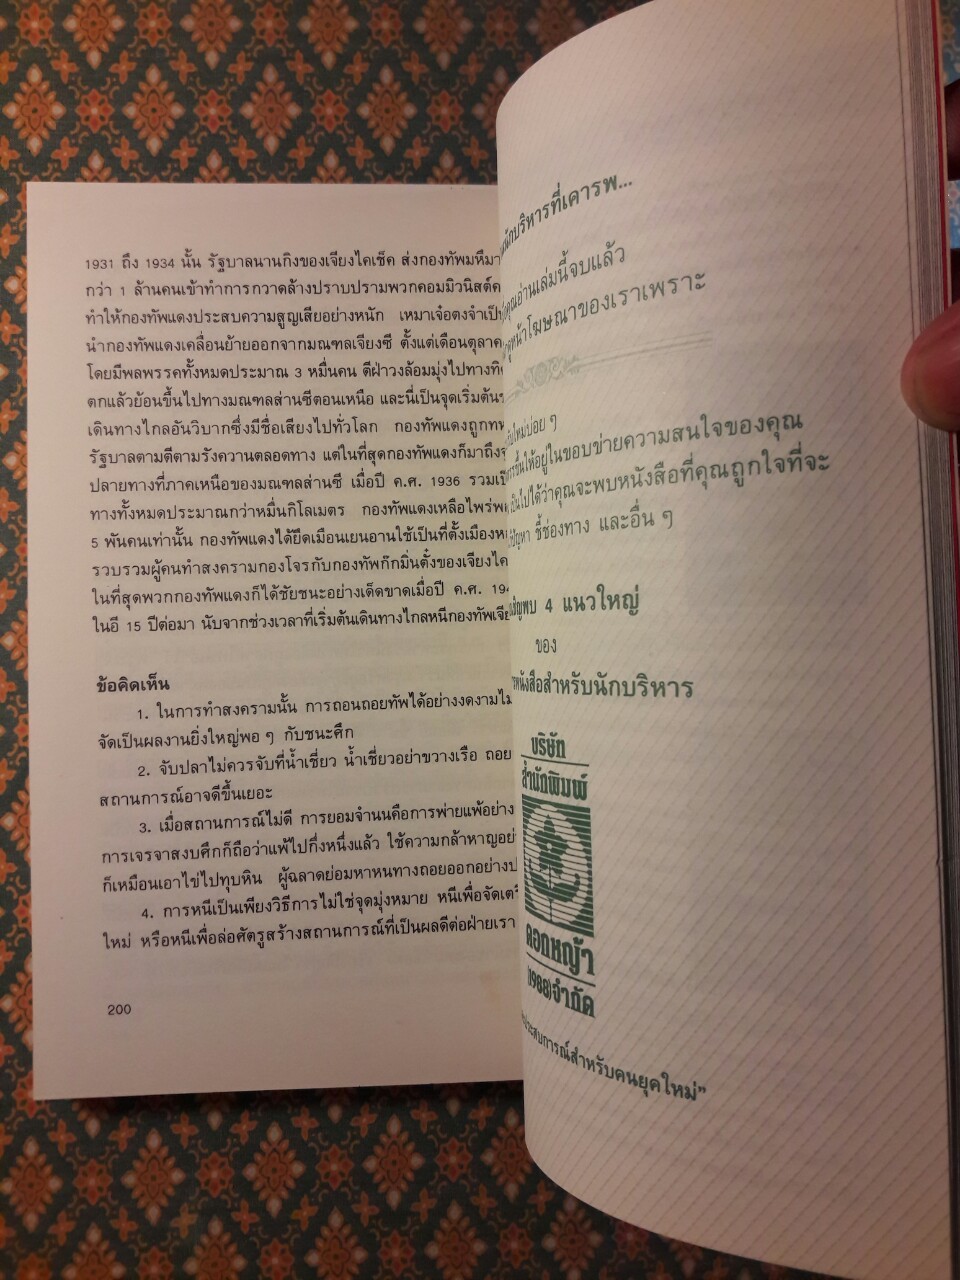 1931 ถึง 1934 นั้น รัฐบาลนานกิงของเจียงไคเช็ค ส่งกองทัพมหึมา
กว่า 1 ล้านคนเข้าทำการกวาดล้างปราบปรามพวกคอมมิวนิสต์
ทำให้กองทัพแดงประสบความสูญเสียอย่างหนัก เหมาเจ๋อตงจำเป็น
นำกองทัพแดงเคลื่อนย้ายออกจากมณฑลเจียงซี ตั้งแต่เดือนตุลาค
โดยมีพลพรรคทั้งหมดประมาณ 3 หมื่นคน ตีฝ่าวงล้อมมุ่งไปทางทิ
ตกแล้วย้อนขึ้นไปทางมณฑลส่านซีตอนเหนือ และนี่เป็นจุดเริ่มต้น
เดินทางไกลอันวิบากซึ่งมีชื่อเสียงไปทั่วโลก กองทัพแดงถูกท
รัฐบาลตามตีตามรังควานตลอดทาง แต่ในที่สุดกองทัพแดงก็มาถึง
ปลายทางที่ภาคเหนือของมณฑลส่านซี เมื่อปี ค.ศ. 1936 รวม
ทางทั้งหมดประมาณกว่าหมื่นกิโลเมตร กองทัพแดงเหลือไพร่พล
5 พันคนเท่านั้น กองทัพแดงได้ยึดเมืองเยนอานใช้เป็นที่ตั้งเมือง
รวบรวมผู้คนทำสงครามกองโจรกับกองทัพก๊กมิ่นตั๋งของเจียงไค
ในที่สุดพวกกองทัพแดงก็ได้ชัยชนะอย่างเด็ดขาดเมื่อปี ค.ศ. 194
ในอี 15 ปีต่อมา นับจากช่วงเวลาที่เริ่มต้นเดินทางไกลหนีกองทัพเจีย
ข้อคิดเห็น
1. ในการทำสงครามนั้น การถอนถอยทัพได้อย่างงดงามไม่
จัดเป็นผลงานยิ่งใหญ่พอ ๆ กับชนะศึก
2. จับปลาไม่ควรจับที่น้ำเชี่ยว น้ำเชี่ยวอย่าขวางเรือ ถอย
สถานการณ์อาจดีขึ้นเยอะ
3. เมื่อสถานการณ์ไม่ดี การยอมจำนนคือการพ่ายแพ้อย่าง
การเจรจาสงบศึกก็ถือว่าแพ้ไปกึ่งหนึ่งแล้ว ใช้ความกล้าหาญอย่
ก็เหมือนเอาไข่ไปทุบหิน ผู้ฉลาดย่อมหาหนทางถอยออกอย่าง
4. การหนีเป็นเพียงวิธีการไม่ใช่จุดมุ่งหมาย หนีเพื่อจัดเตรี
ใหม่ หรือหนีเพื่อล่อศัตรูสร้างสถานการณ์ที่เป็นผลดีต่อฝ่ายเรา
200
นักบริหารที่เคารพ...
คุณอ่านเล่มนี้จบแล้ว
ดูหน้าโฆษณาของเราเพราะ
ใหม่บ่อย ๆ
ขึ้นให้อยู่ในขอบข่ายความสนใจของคุณ
เป็นไปได้ว่าคุณจะพบหนังสือที่คุณถูกใจที่จะ
ปัญหา ชี้ช่องทาง และอื่น ๆ
เชิญพบ 4 แนวใหญ่
ของ
หนังสือสำหรับนักบริหาร
บริษัท
สำนักพิมพ์
ดอกหญ้า
(1988)จำกัด
ประสบการณ์สำหรับคนยุคใหม่”